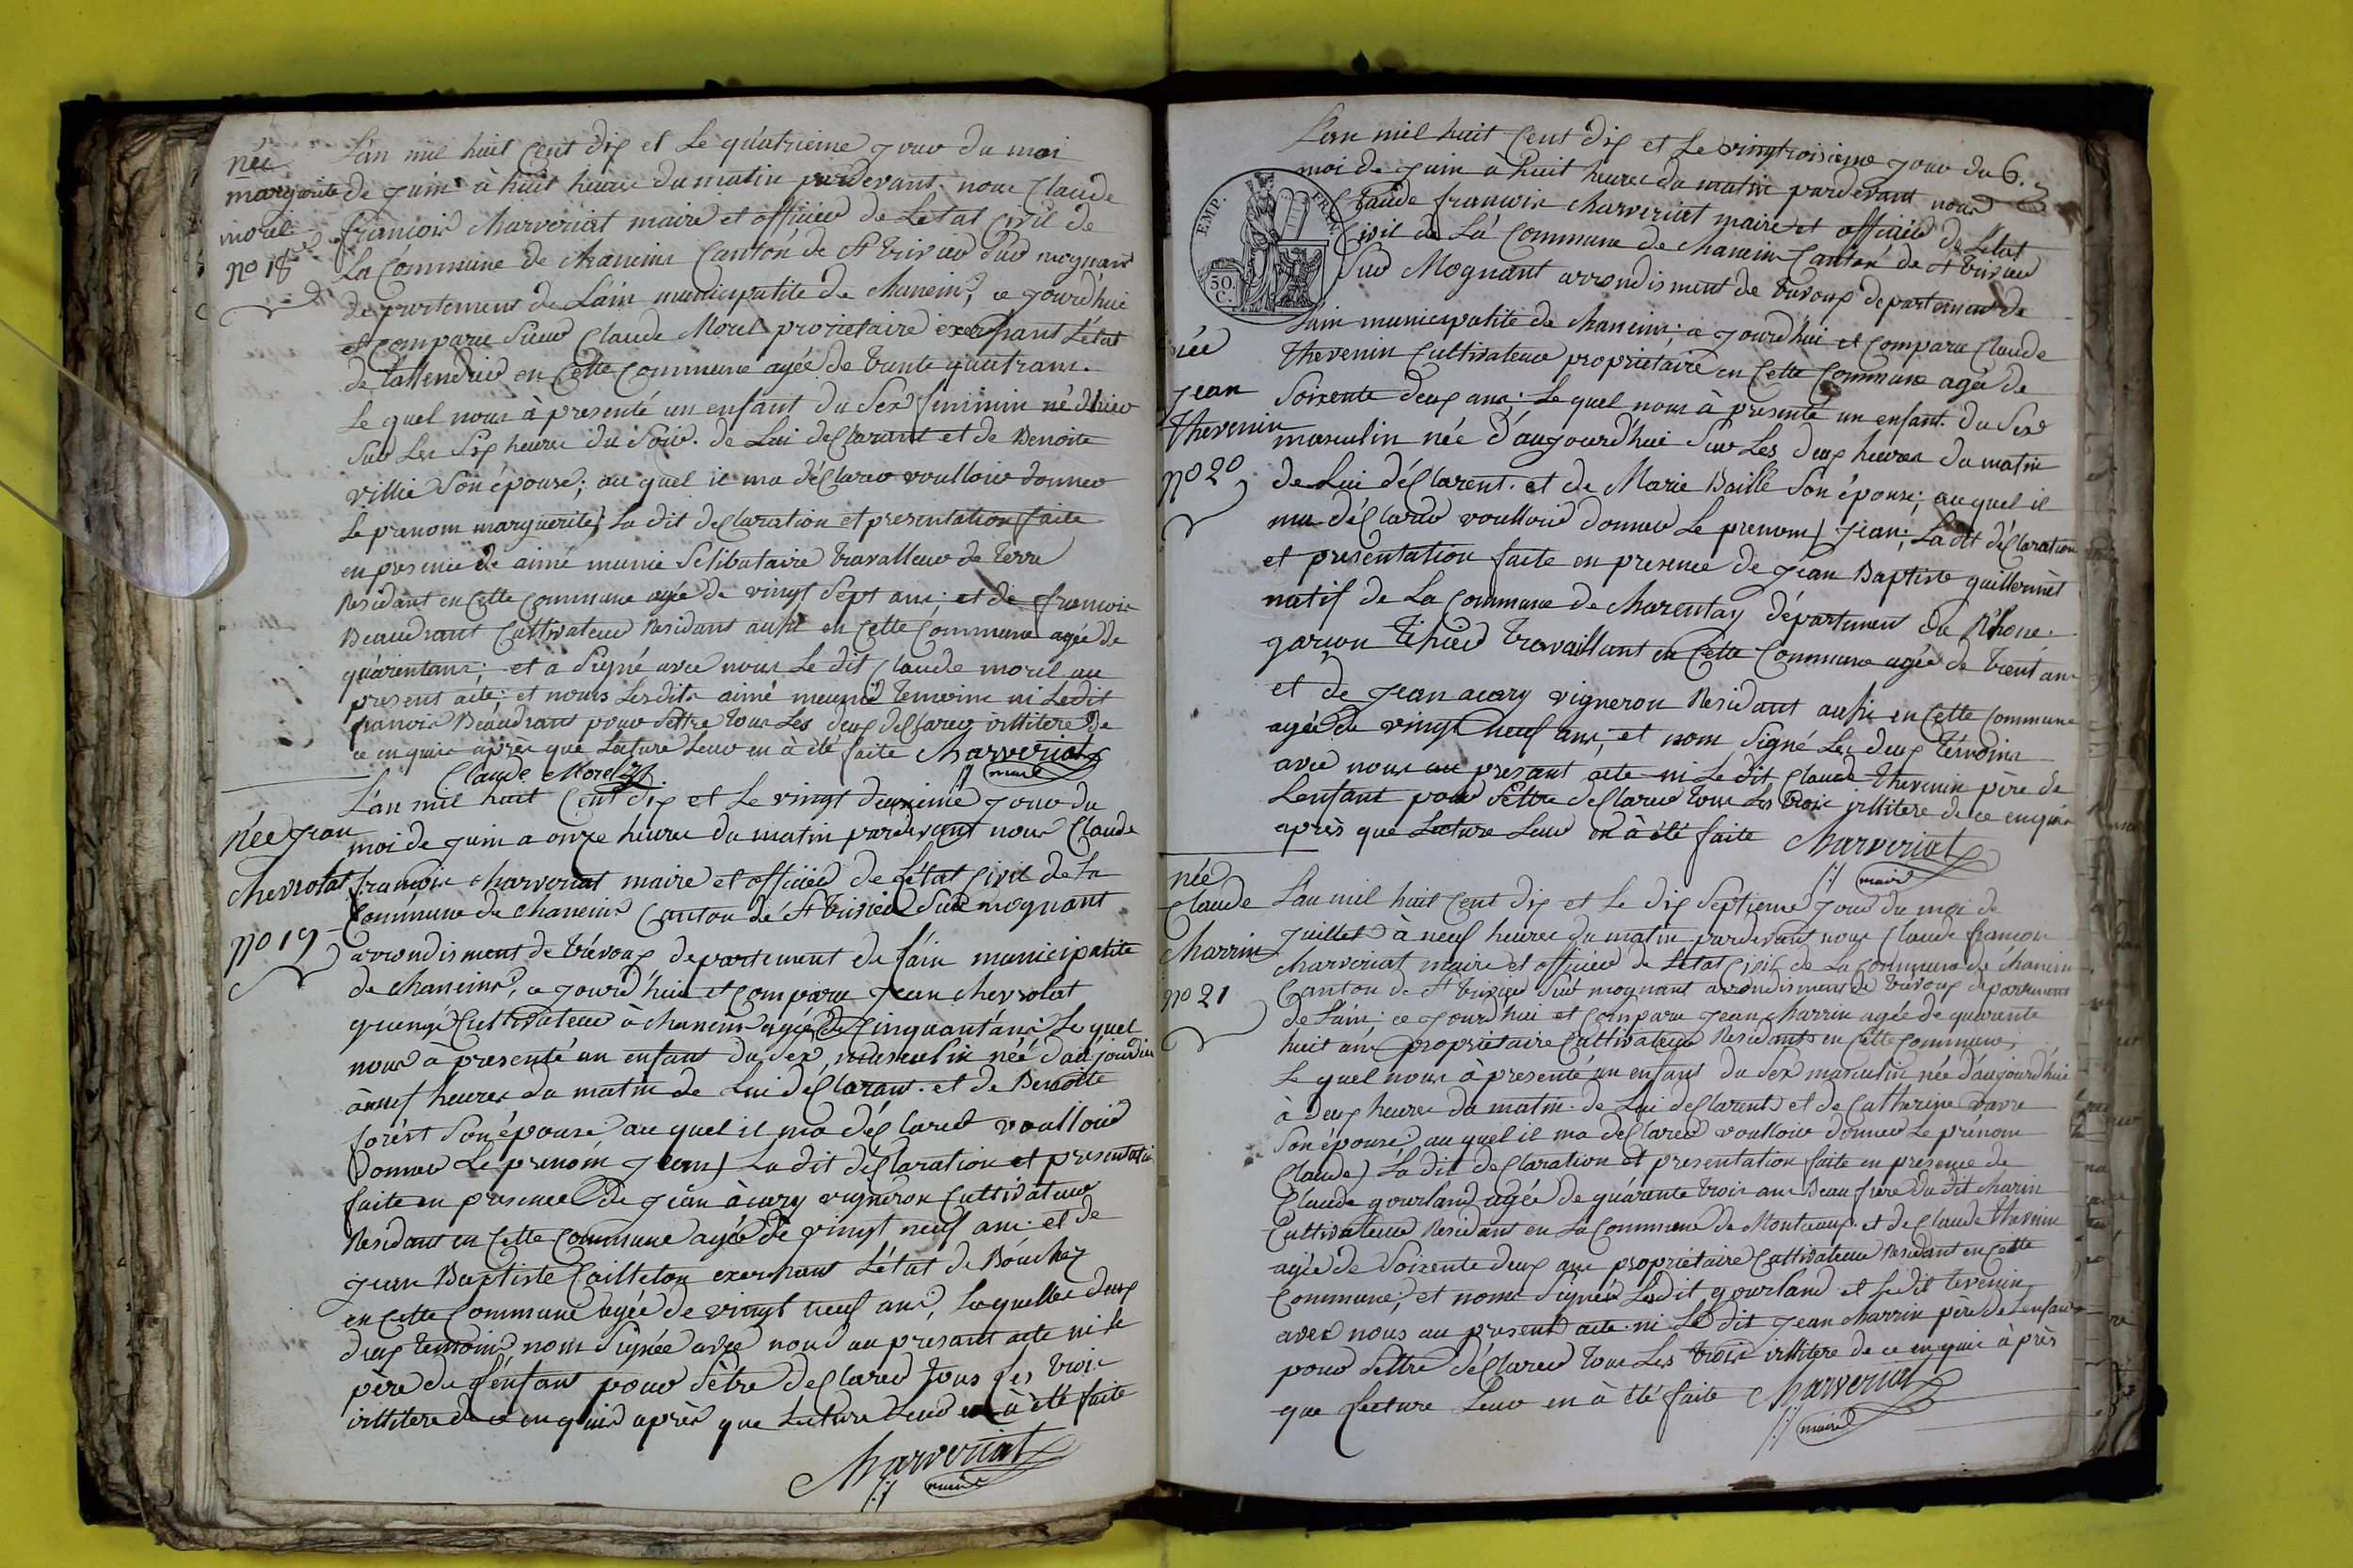 née
margerite
morel
nº 18
L'an mil huit Cent dix et Le quatrieme jour du moi
de juin à huit heure du matin pardevant nous Claude
francois Charveriat maire et officier de Letat Civil de
La Commune de Chaneins Canton de St trivier Sur mognant
departement de L'ain municipalité de Chaneins, ce jourdhui
et comparu Sieur Claude Morel proprietaire exersant L'état
de en Cette Commune agée de trente quatrans.
Le quel nous à presenté un enfant du Sex feminin né d'hier
Sur Les Six heure du Soir. de Lui desClarant et de Benoite
villié Son épouse; au quel il ma désClarer voulloir donner
Le prenom marguerite) La dit desClaration et presentation faite
en presence de aimé Selibataire travalleur de terre
Residant en Cette Commune agée de vingt Sept ans; et de francois
Beaudrant Cultivateur Residant ausi en Cette Commune agée de
quarentans; et a Signé avec nous Le dit Claude morel au
present acte; et nomis Lesdits aimé temoins ni Ledit
francois Beaudrant pour Settre tous Les deux desClarer illitere de
ce enquis après que Lecture Leur en à été faite Charveriat
Claude Morel maire
née jean
Chevrolat
nº 19
L'an mil huit Cent dix et Le vingt deuxieme jour du
moi de juin a onze heure du matin pardevant nous Claude
francois Charveriat maire et officier de L'état Civil de La
Commune de Chaneins Canton de St trivier Sur mognant
arrondisment de trévoux departement de L'ain municipalité
de Chaneins, ce jourd'hui et comparu jean Chevrolat
Cultivateur à Chaneins agée de Cinquant'ans Le quel
nous à presenté un enfant du Sex masculin néé daujourdhui
à neuf heures du matin de Lui desClarant. et de Benoitte
forest Son épouse au quel il ma désClarer voulloir
Donner Le prenom jean) La dit désClaration et presentation
faite en presence de jean àcary vigneron Cultivateur
Residant en Cette Commune agée de vingt neuf ans. et de
jean Baptiste Cailleton exersant L'état de Boucher
en Cette Commune agée de vingt neuf ans, Laquelles deux
deux temoins nom Signée avec nous au présant acte ni le
père de L'enfant pour Sètre desClarer tous Les trois
illitere de ce enquis après que Lecture Leur en à été faite
Charveriat
maire
EMP. FRAN.
50.
C.
6.
née
jean
thevenin
nº 20
L'an mil huit Cent dix et Le vingtroisieme jour du
moi de juin à huit heures du matin pardevant nous
Claude francois Charveriat maire et officier de L'état
Civil de La Commune de Chaneins Canton de St trivier
Sur Mognant arrondisment de trevoux departement de
Lain municipalité de Chaneins; ce jourd'hui et comparu Claude
thevenin Cultivateur proprietaire en Cette Commune agée de
Soixente deux ans; Le quel nous à presenté un enfant. du Sex
masculin née d'aujourd'hui Sur Les deux heures du matin
de Lui désClarent. et de Marie Baillé Son épouse; au quel il
ma désClarer voulloir donner Le prenom) jean; La dit désClaration
et presentation faite en presence de jean Baptiste guillermet
natif de La Commune de Charentay département du Rhone.
garcon travaillant en Cette Commune agée de trent ans
et de jean acary vigneron Residant ausi en Cette Commune
agée de vingt neuf ans; et nom Signé Les deux témoins
avec nous au presant acte ni Le dit Claude thevenin père de
Lenfant pour Settre desClarer tous Les trois illitere de ce enquis
après que Lecture Leur en à été faite Charveriat
maire
née
Claude
Charrin
nº 21
L'an mil huit Cent dix et Le dix Septieme jour du moi de
juillet à neuf heures du matin pardevant nous Claude francois
Charveriat maire et officier de L'état Civil de La Commune de Chaneins
Canton de St trivier Sur mognant arrondisment de trévoux departement
de Lain; ce jourd'hui et comparu jean Charrin agée de quarente
huit ans proprietaire Cultivateur Residant en Cette Commune,
Le quel nous à presenté un enfant du Sex masculin née d'aujourd'hui
à deux heures du matin. de Lui desClarent et de Catherine
Son épouse au quel il ma desClarer voulloir donner Le prénom
Claude) La dit desClaration et presentation faite en presence de
Claude gourland agée de quarente trois ans Beau frere du dit Charin
Cultivateur Residant en La Commune de Montceaux. et de Claude thevenin
agée de Soixente deux ans proprietaire Cultivateur Residant en Cette
Commune, et nom Signée Ledit gourland et Le dit tevenin,
avec nous au present acte. ni Le dit jean Charrin père de Lenfant
pour Settre désClarer tous Les trois illitere de ce enquis après
que Lecture Leur en à été faite Charveriat
maire